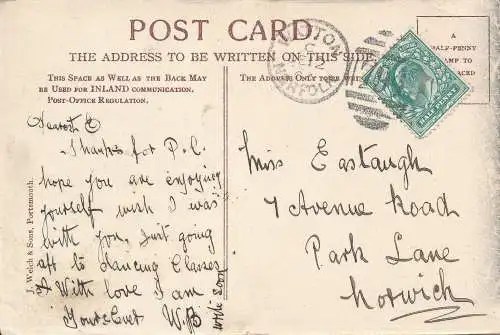 POST CARD
THE ADDRESS TO BE WRITTEN ON THIS SIDE.
This Space as Well as the Back May
be Used for INLAND communication.
Post-Office Regulation.
The Address Only to be
A
HALF-PENNY
HALF PENNY
NORFOLK
J. Welch & Sons, Portsmouth.
Dearest E
Thanks for P.C.
hope you are enjoying
yourself wish I was
with you. Just going
off to Dancing Classes
With love I am
Yours Ever W.B
Write Soon
Miss Eastaugh
7 Avenue Road
Park Lane
Norwich